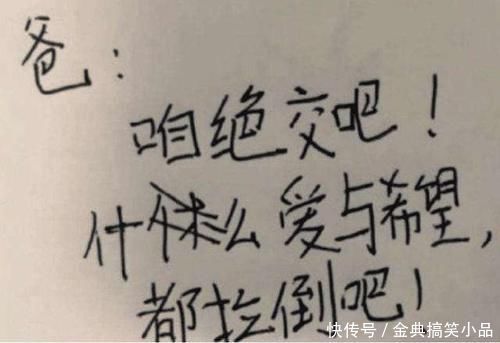 爸：
咱绝交吧！
什么爱与希望，
都拉倒吧！
快传号／金典搞笑小品